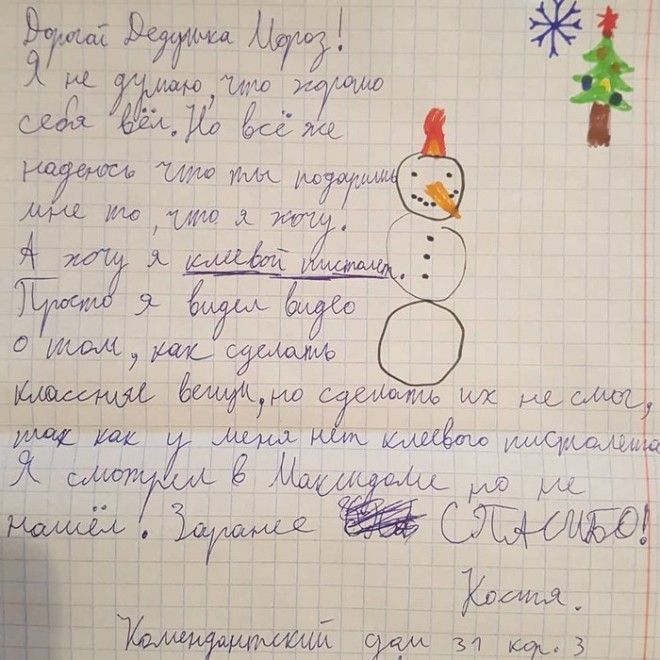 Дорогай Дедушка Мороз!
Я не думаю, что хорошо
себя вёл. Но всё же
надеюсь что ты подаришь
мне то, что я хочу.
А хочу я клеевой пистолет.
Просто я видел видео
о том, как сделать
классные вещи, но сделать их не смог,
так как у меня нет клеевого пистолета
Я смотрел в Максидоме но не
нашёл. Заранее СПАСИБО!
Костя.
Комендантский дом 31 кор. 3